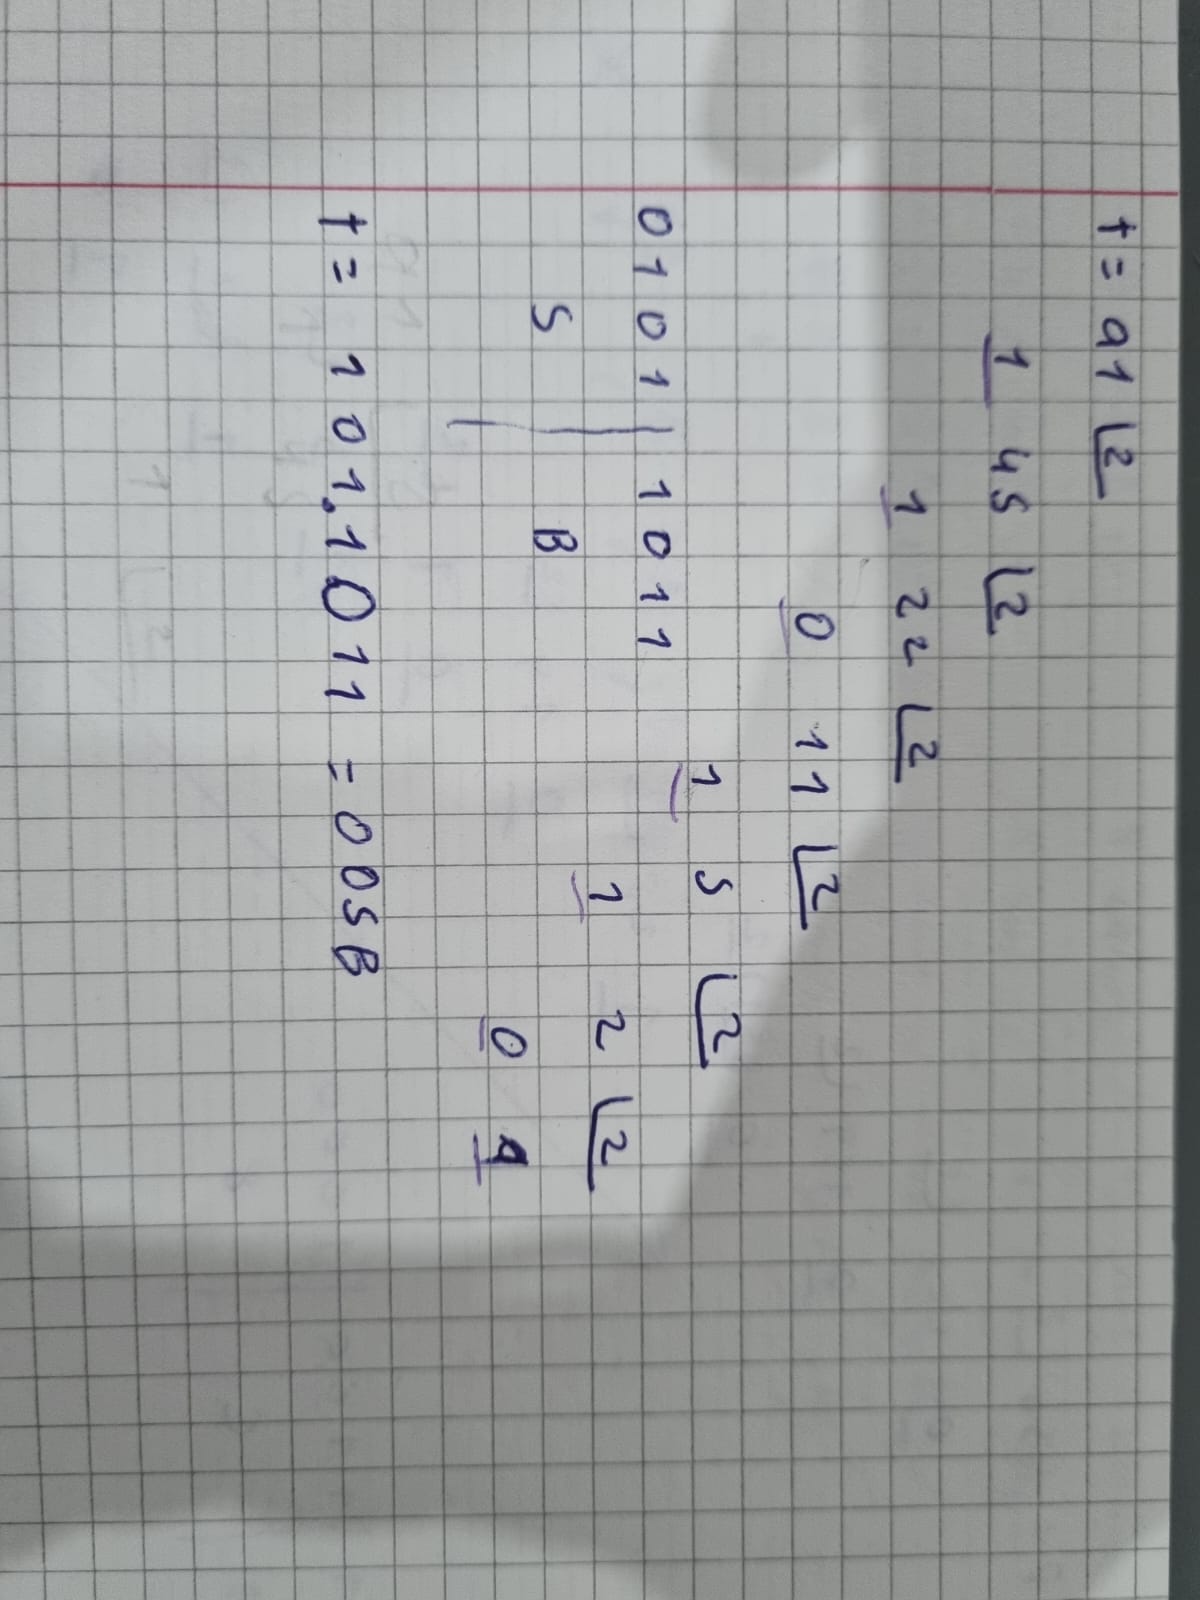 t = 91 2
1 45 2
1 22 2
0 11 2
1 5 2
0101 | 1011
1 2 2
5 B
0 1
t = 101.1011 = 005B